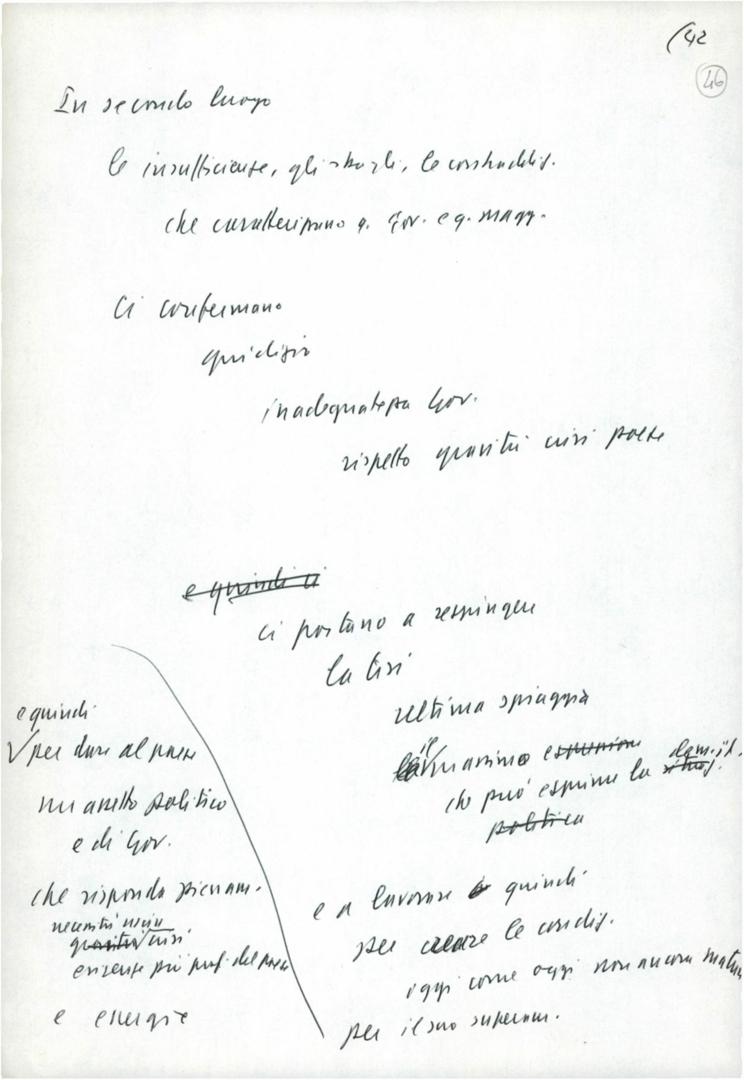 (42
46
In secondo luogo
le insufficienze, gli sbagli, le contraddiz.
che caratterizzano q. Gov. e q. magg.
ci confermano
giudizio
inadeguatezza Gov.
rispetto gravità crisi paese
e quindi ci
ci portano a respingere
la tesi
ultima spiaggia
il massimo espressione
che può esprimere la situaz.
politica
e a lavorare quindi
per creare le condiz.
oggi come oggi non ancora mature
per il suo superam.
e quindi
per dare al paese
un assetto politico
e di Gov.
che risponda pienam.
necessità
gravità crisi.
esigenze più prof. del paese
e energie